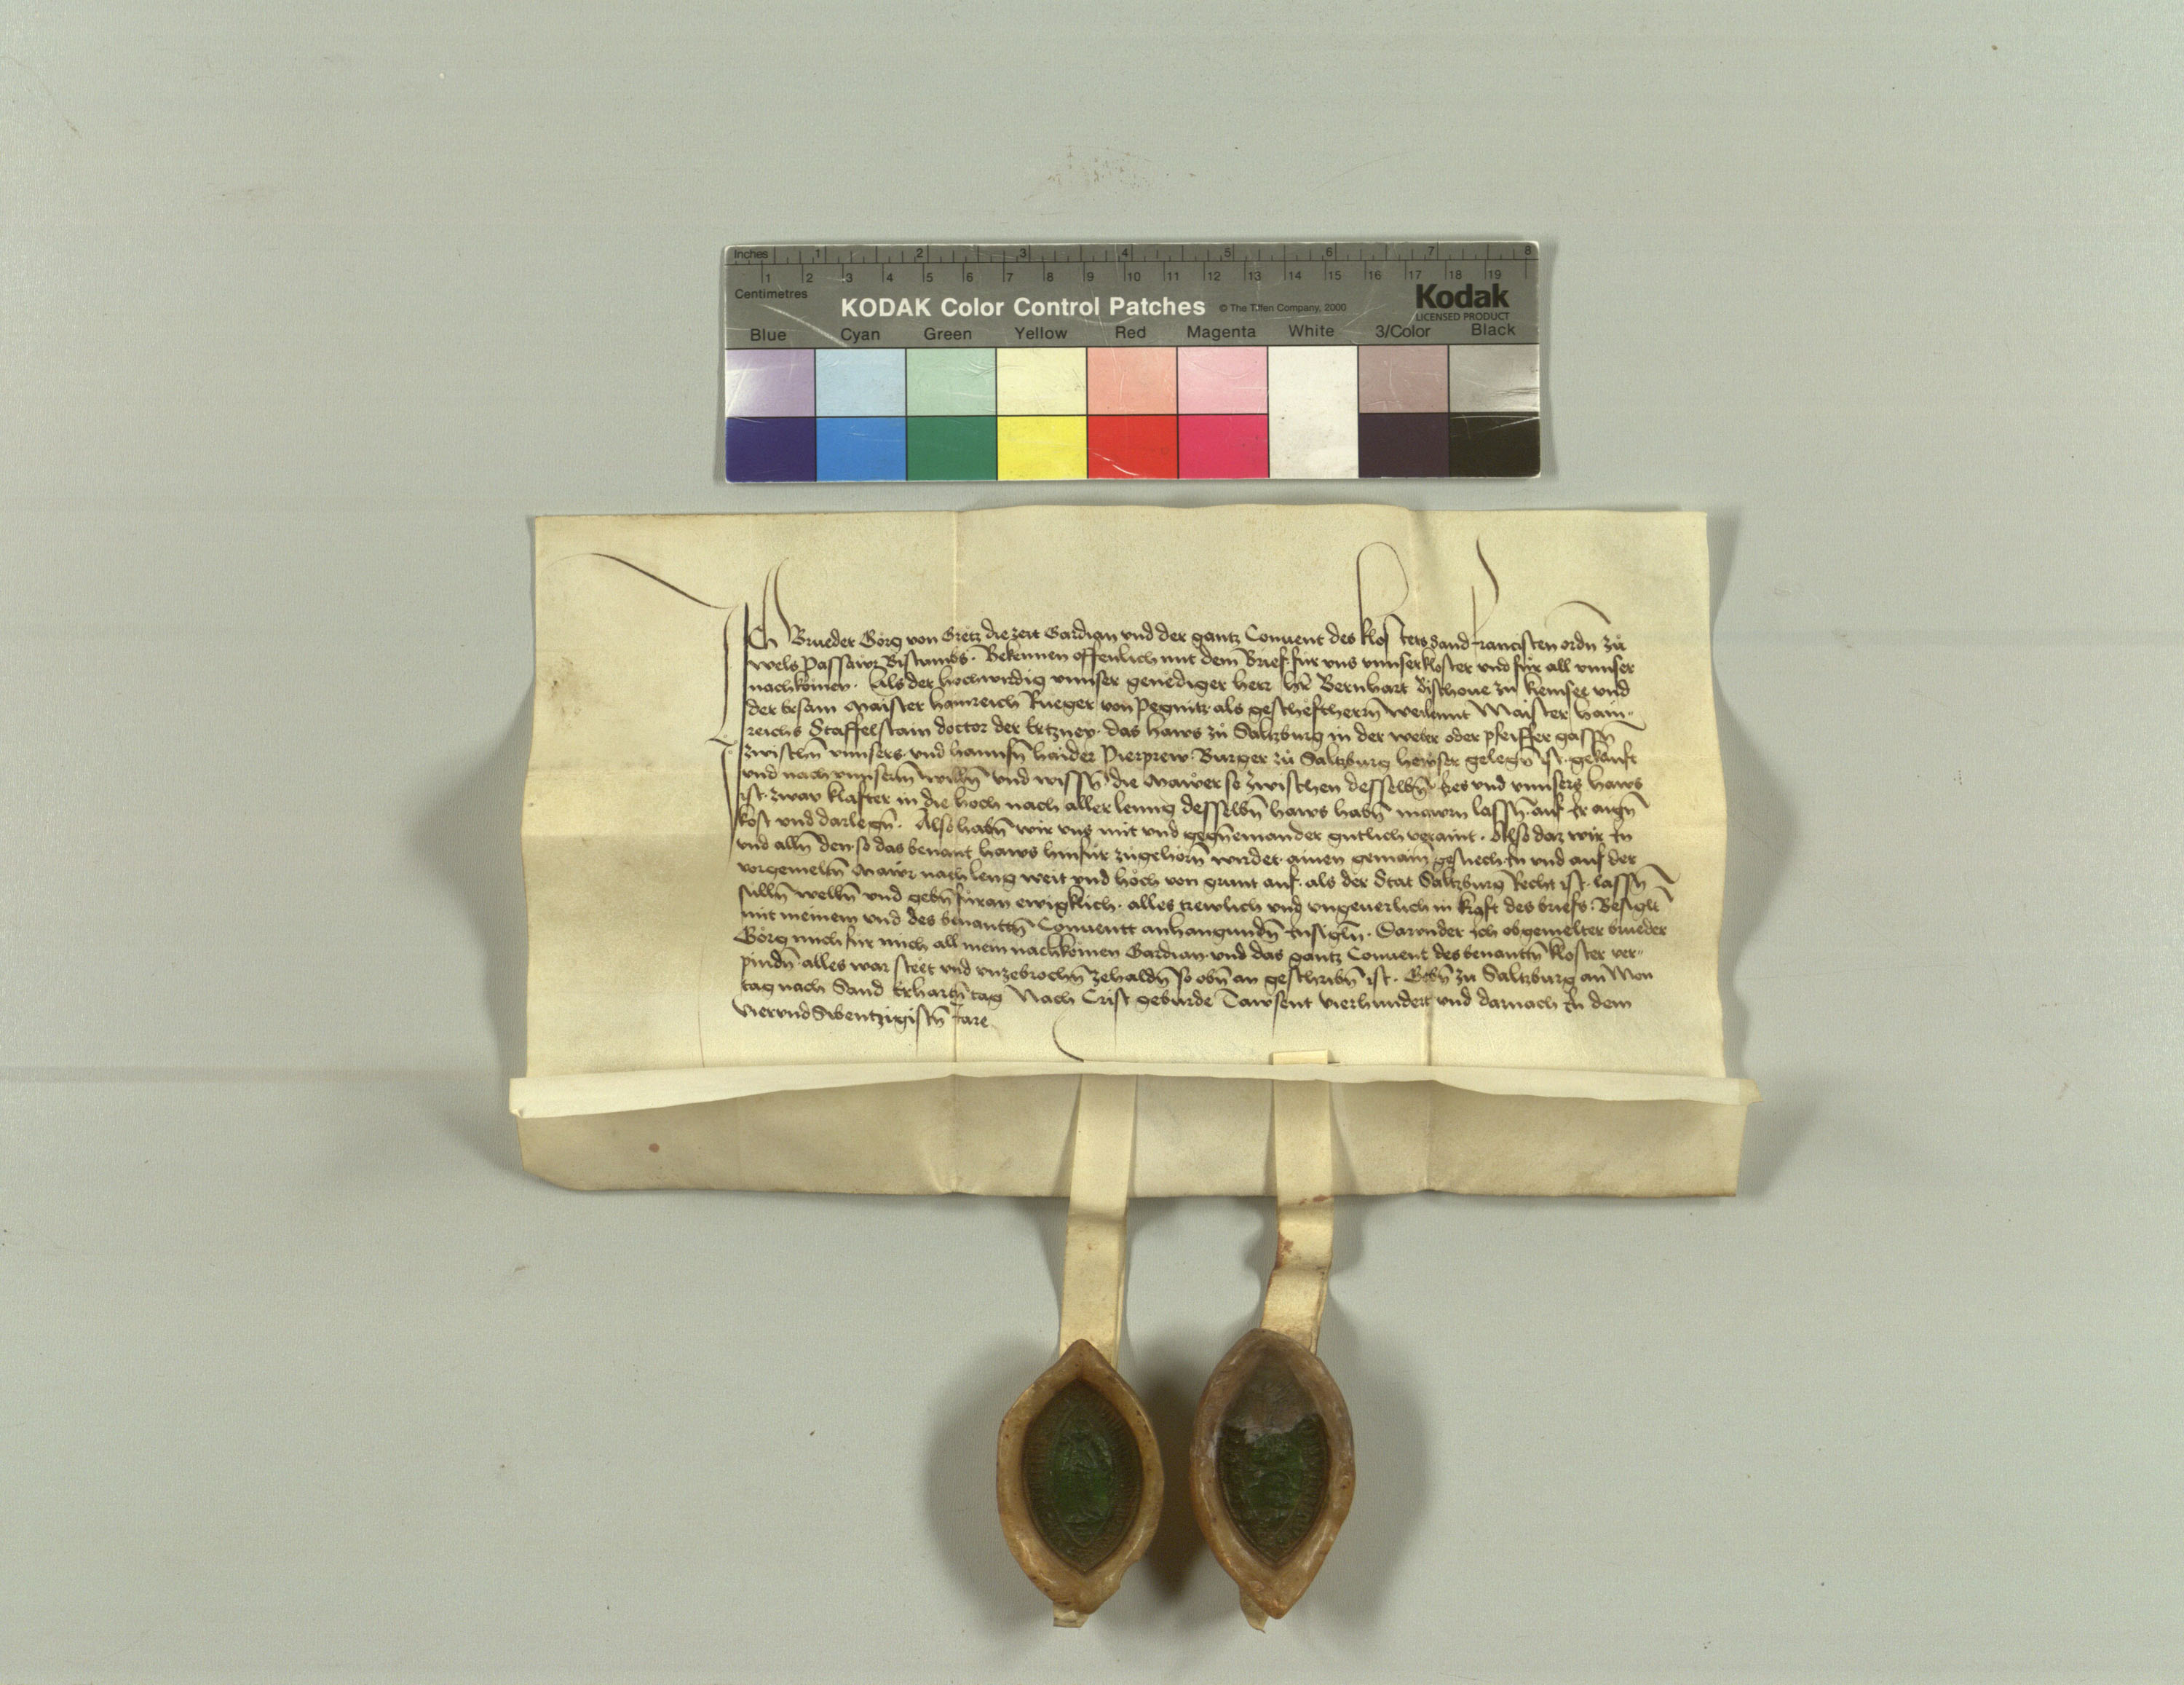 Inches 1 2 3 4 5 6 7 8
1 2 3 4 5 6 7 8 9 10 11 12 13 14 15 16 17 18 19
Centimetres
KODAK Color Control Patches © The Tiffen Company, 2000 Kodak
LICENSED PRODUCT
Blue Cyan Green Yellow Red Magenta White 3/Color Black
Ich Brueder Görg von Gretz die zeit Gardian vnd der gantz Conuent des klosters sand francisten ordn̄ zů
wels Passawr Bistumbs. Bekennen offenlich mit dem Brief für vns vnnser kloster vnd für all vnnser
nachkömen. Als der hochwirdig vnnser genediger herr her Bernhart Bischoue zu kemsee vnd
der ersam Maister hainreich Rueger von Pegnitz als gescheftherrn̄ weilennt Maister hain-
reichs Staffelstain doctor der Ertzney. das haws zů Saltzburg in der weiten oder pfeiffer gassn̄
zwischn̄ vnnsers vnd hannsn̄ haider Pierprew. Burger zů Saltzburg hewser gelegn̄ ist. gekauft
vnd nach vnnserm̄ willn̄ vnd wissn̄ die Mawer so zwischen desselbn̄ vnd vnnsers haws
ist. zway klafter in die hoch nach aller lenng desselbn̄ haws habn̄ mawrn lassn̄ auf Ir aign̄
kost vnd darlegn̄. Also habn̄ wir vns mit vnd gegn̄einander gutlich veraint. Also daz wir In
vnd alln̄ den so das benant haws hinfür zugehörn̄ wirdet. ainen gemain̄ gesuech In vnd auf der
vorgemeltn̄ Mawr nach leng weit vnd höch von grunt auf. als der Stat Saltzburg Recht ist. lassn̄
sulln̄ welln̄ vnd gebn̄ füran ewigklich. alles trewlich vnd vngeuerlich in kraft des briefs. Besiglt
mit meinem vnd des benanttn̄ Conuentt anhangundn̄ Insigln̄. Darunder Ich obgemelter brueder
Görg mich für mich all mein nachkömen Gardian vnd das gantz Conuent des benantn̄ kloster ver-
pindn̄ alles war steet vnd vnzebrochn̄ zehaldn̄ so obn̄ an geschribn̄ ist. Gebn̄ zu Saltzburg an Mon
tag nach Sand Erhartn̄ tag Nach Crist geburde Tawsent vierhundert vnd darnach In dem
viervnd Sibentzigistn̄ Jare